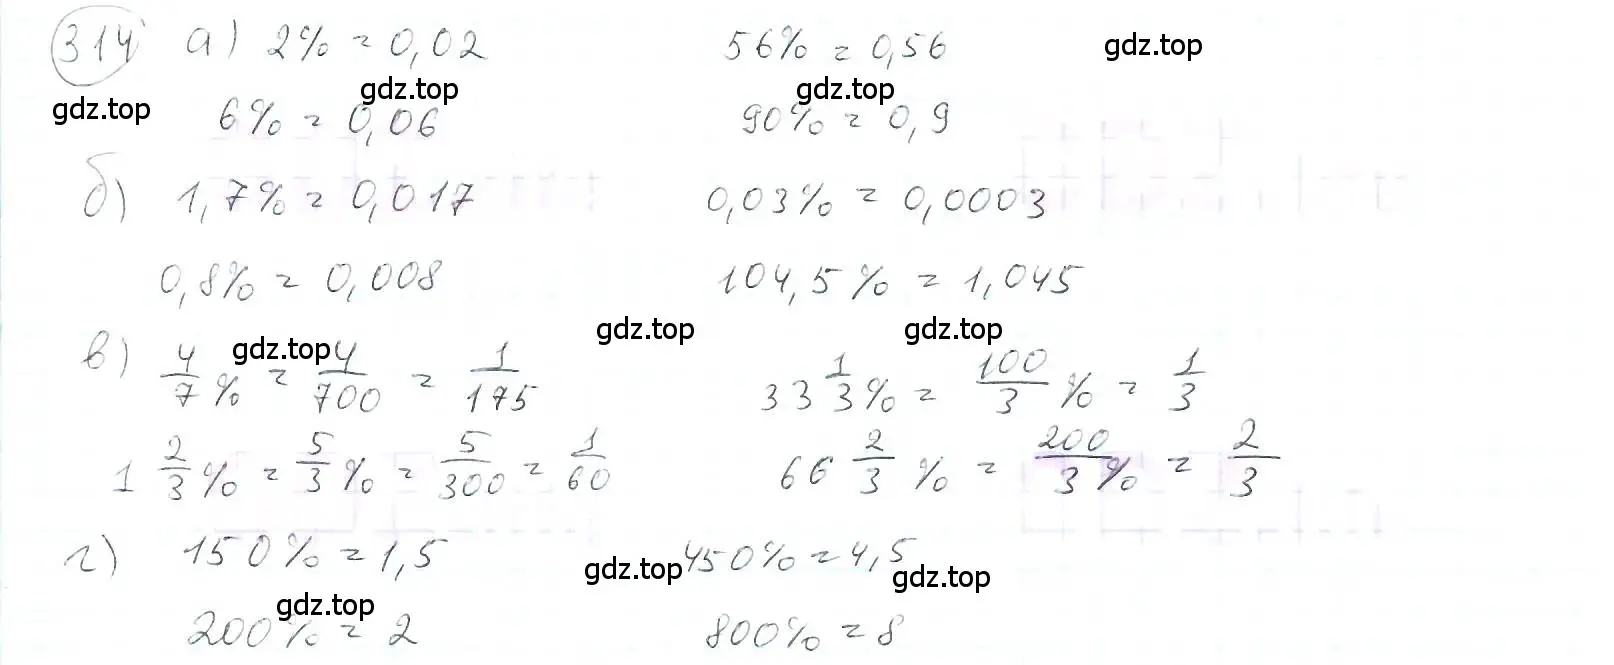 314 а) 2% = 0,02 56% = 0,56 gdz.top
gdz.top gdz.top gdz.top
6% = 0,06 90% = 0,9
б) 1,7% = 0,017 0,03% = 0,0003
0,8% = 0,008 104,5% = 1,045
gdz.top gdz.top
в) 4/7 % = 4/700 = 1/175 33 1/3 % = 100/3 % = 1/3
gdz.top
1 2/3 % = 5/3 % = 5/300 = 1/60 66 2/3 % = 200/3 % = 2/3
г) 150% = 1,5 450% = 4,5
gdz.top gdz.top
gdz.top
200% = 2 800% = 8